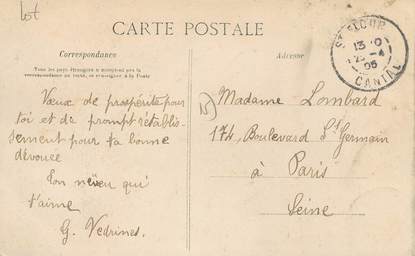 Lot
CARTE POSTALE
Correspondance
Tous les pays étrangers n'acceptent pas la
correspondance au recto, se renseigner à la Poste
Adresse
ST FLOUR
CANTAL
Vœux de prospérité pour
toi et de prompt rétablis-
sement pour ta bonne
dévouée
Ton neveu qui
t'aime
G. Vedrines.
Madame Lombard
174, Boulevard St Germain
à Paris
Seine